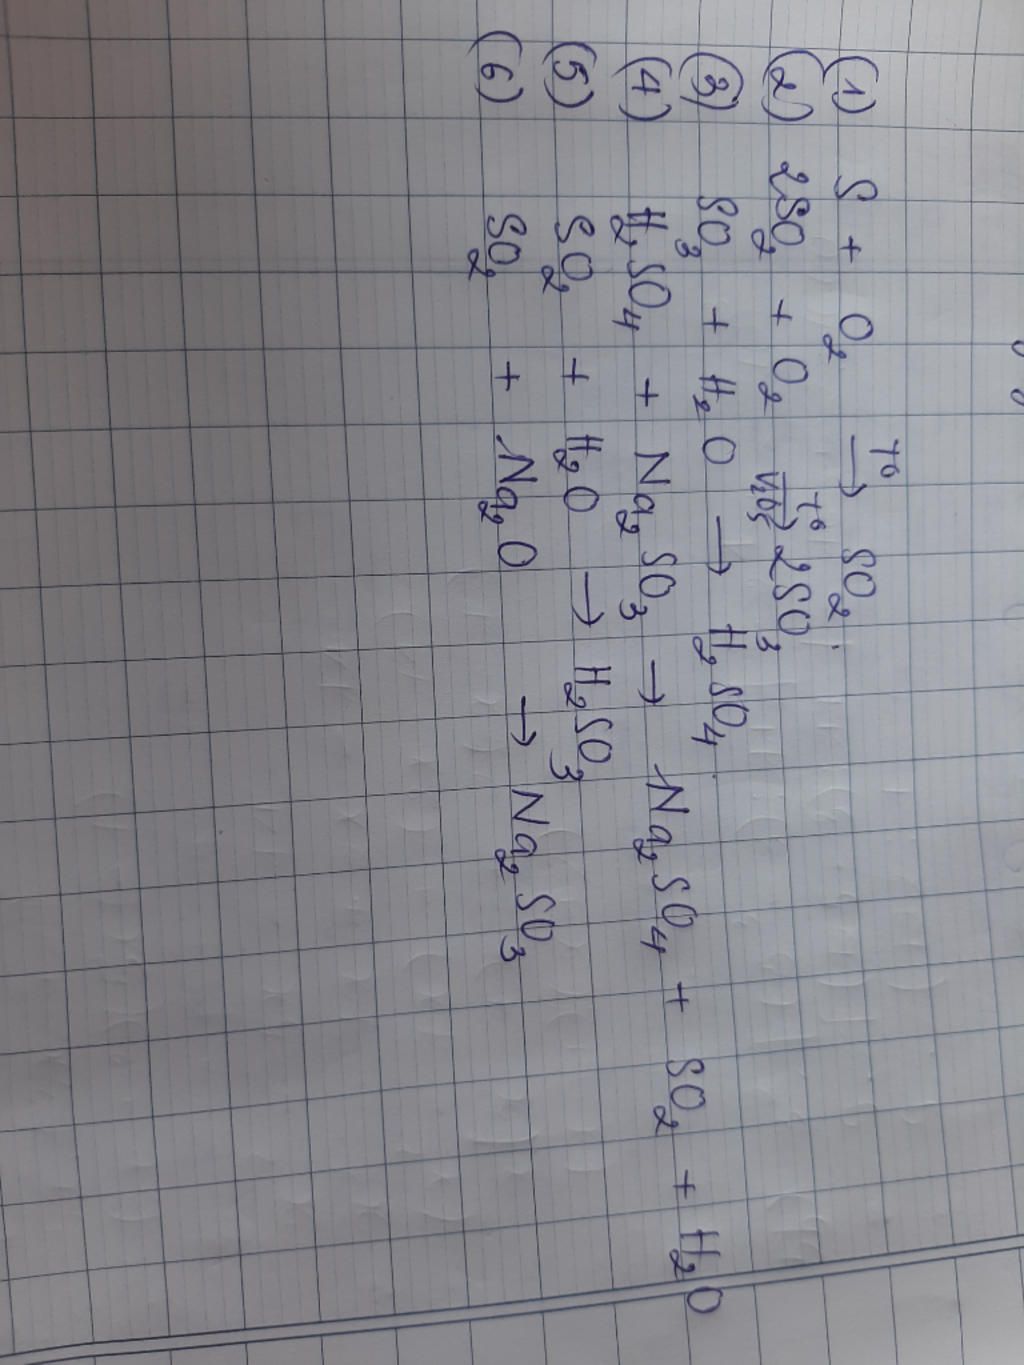 (1) S + O₂ →(T⁰) SO₂.
(2) 2SO₂ + O₂ →(T⁰, V₂O₅) 2SO₃
(3) SO₃ + H₂O → H₂SO₄
(4) H₂SO₄ + Na₂SO₃ → Na₂SO₄ + SO₂ + H₂O
(5) SO₂ + H₂O → H₂SO₃
(6) SO₂ + Na₂O → Na₂SO₃